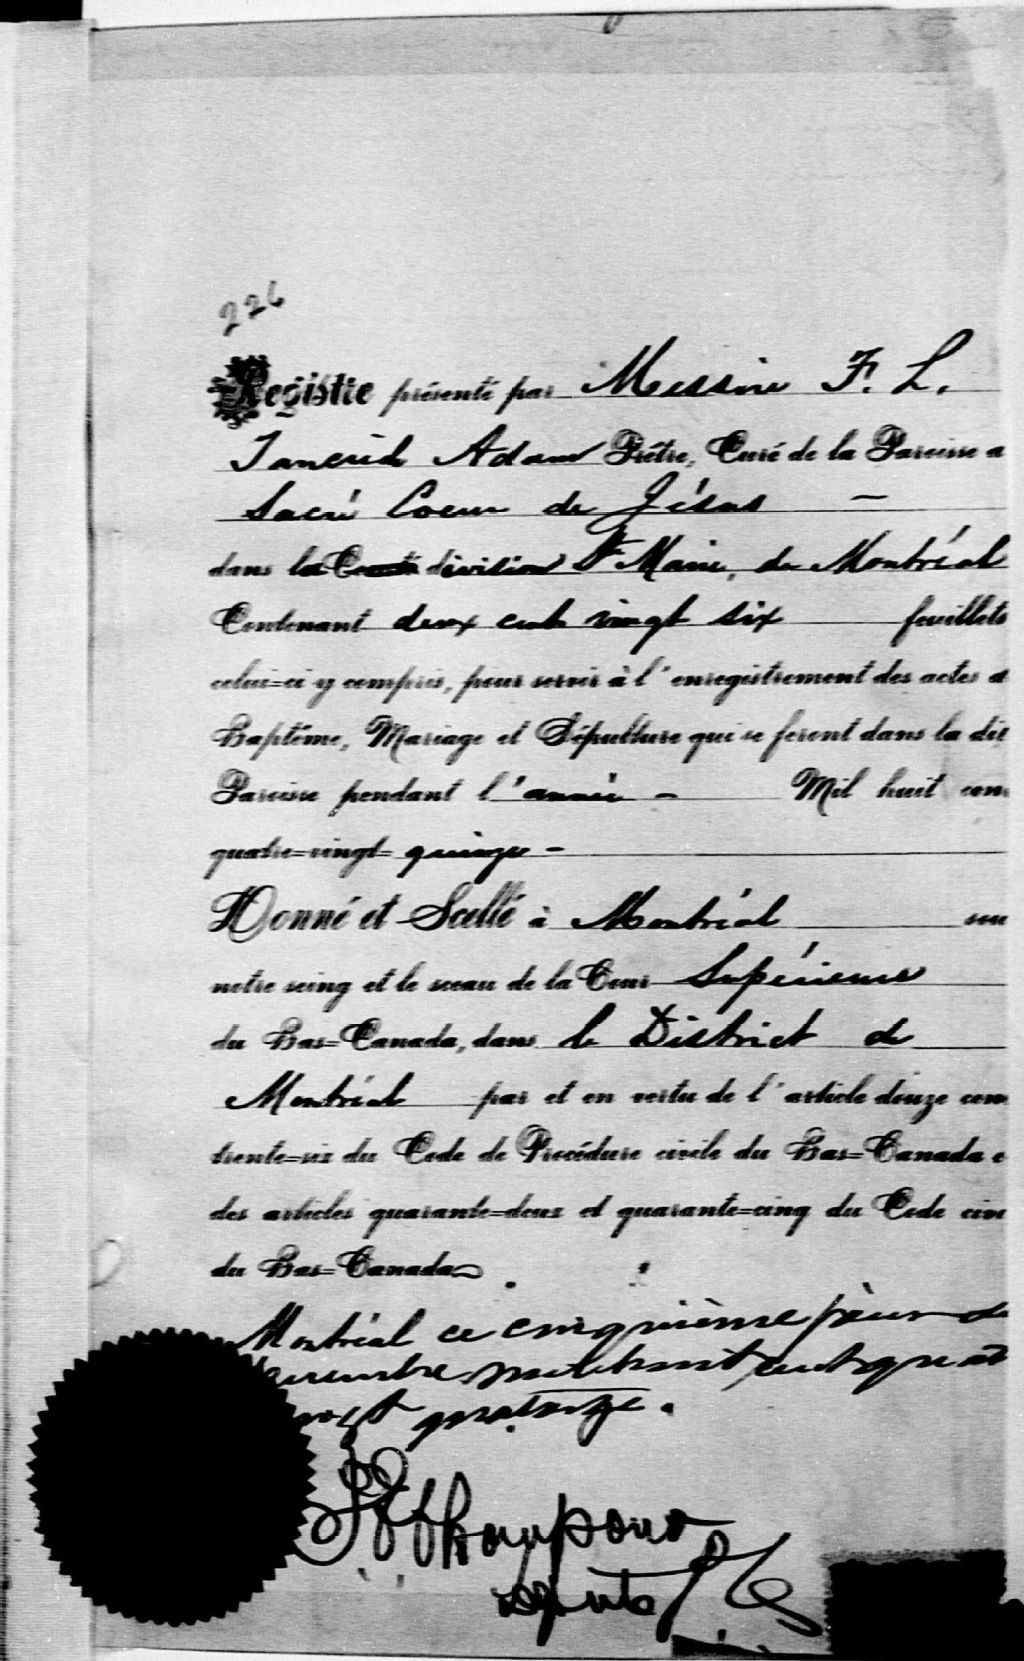 226
Registre présenté par Messire F. L.
Tancrède Adam Prêtre, Curé de la Paroisse
Sacré Coeur de Jésus —
dans la Comté division Ste Marie, de Montréal
Contenant deux cent vingt six feuillets
celui=ci y compris, pour servir à l'enregistrement des actes
Baptême, Mariage et Sépulture qui se feront dans la dit
Paroisse pendant l'année — Mil huit cen
quatre=vingt= quinze —
Donné et Scellé à Montréal sou
notre seing et le sceau de la Cour Supérieure
du Bas=Canada, dans le District de
Montréal par et en vertu de l'article douze cen
trente=six du Code de Procédure civile du Bas=Canada e
des articles quarante=deux et quarante=cinq du Code civi
du Bas=Canada
Montréal ce cinquième jour de
décembre mil huit cent quat
vingt quatorze.